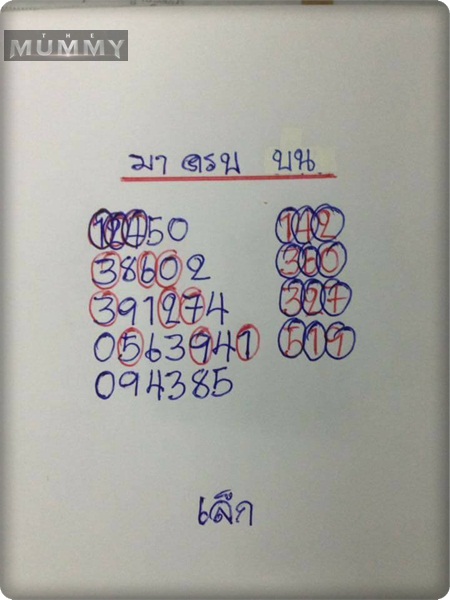 THE
MUMMY
มา ครบ บน
12450 142
38602 360
391274 327
0563941 519
094385
เล็ก